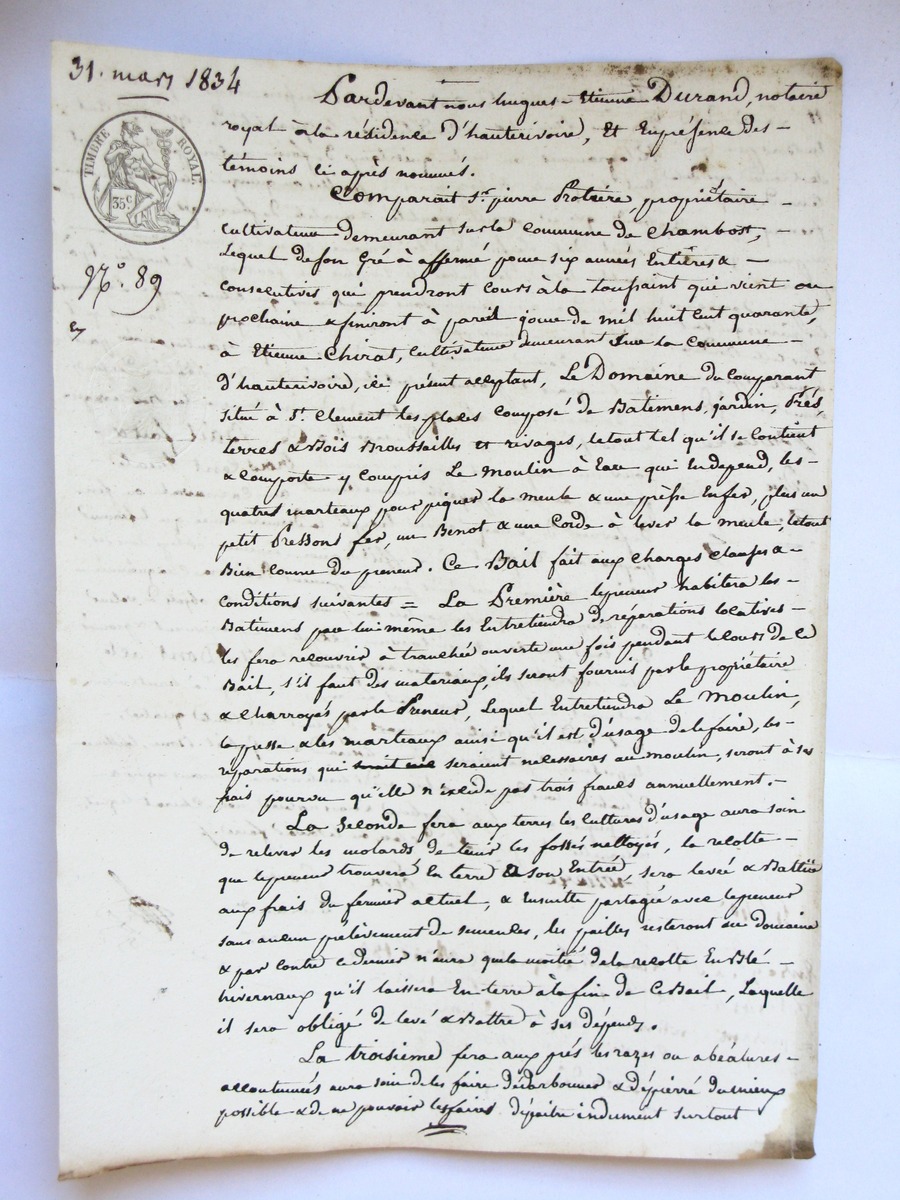 31. mars 1834
TIMBRE ROYAL.
35 c
N.o 89
Pardevant nous hugues-Etienne Durand, notaire
royal à la résidence d'hauterivoire, et En présence des-
témoins ci après nommés.
Comparait Sr. pierre Protière propriétaire -
cultivateur demeurant sur la commune de Chambost, -
Lequel de son Gré à affermé pour six années Entières & -
consécutives qui prendront cours à la toussaint qui vient ou
prochaine & finiront à pareil jour de mil huit cent quarante,
à Etienne Chirat, cultivateur demeurant sur la commune -
d'hauterivoire, ici présent acceptant, Le Domaine du comparant
situé à St. Clement les places composé de Batimens, jardin, Prés,
terres & Bois Broussailles et rivages, le tout tel qu'il se contient
& comporte y compris Le moulin à Eau qui En depend, les-
quatres marteaux pour piquer la meule & une presse En fer, plus un
petit Presson fer, un Benot & une Corde à lever la meule, le tout
Bien connu du preneur. Ce Bail fait aux charges clauses & -
conditions suivantes = La Première le preneur habitera les-
Batimens par lui même les Entretiendra de réparations locatives-
les fera recouvrir à tranchée ouverte une fois pendant le cours de ce
Bail, s'il faut des materiaux, ils seront fournis par le propriétaire
& charroyés par le Preneur, Lequel Entretiendra Le Moulin,
la presse & les marteaux ainsi qu'il est d'usage de le faire, les-
reparations qui seraient nécessaires au moulin, seront à ses
frais pourvu qu'elle n'excède pas trois francs annuellement. -
La Seconde fera aux terres les cultures d'usage aura soin
de relever les molards de tenir les fossés nettoyés, la récolte -
que le preneur trouvera En terre à son Entrée, sera levée & Battue
aux frais du fermier actuel, & Ensuite partagée avec le preneur
sans aucun prélèvement de semences, les pailles resteront au domaine
& par contre ce dernier n'aura que la moitié de la récolte En Blé -
hivernaux qu'il laissera En terre à la fin de ce Bail, Laquelle
il sera obligé de levé & Battre à ses dépends.
La troisième fera aux prés les razes ou abéalures -
accoutumés aura soin de les faire dédarbonner & dépierré du mieux
possible & de ne pouvoir les faires dépaitre indument surtout